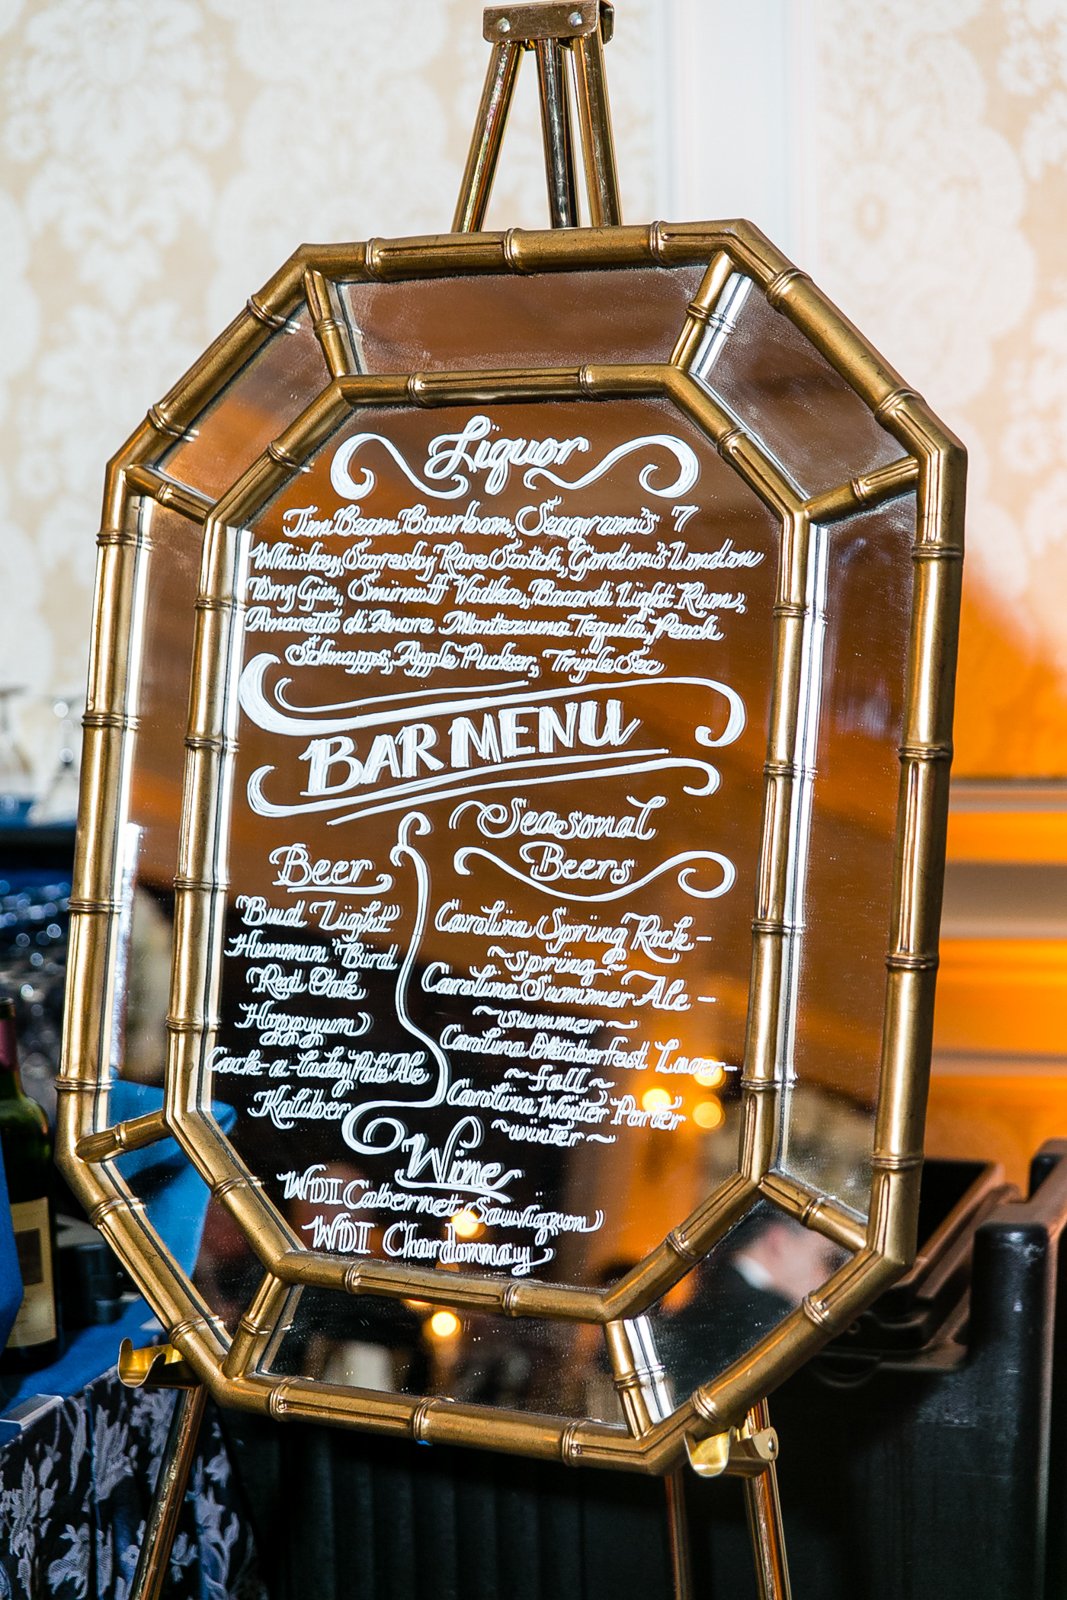 Liquor
Jim Beam Bourbon, Seagram's 7
Whiskey, Scoresby Rare Scotch, Gordon's London
Dry Gin, Smirnoff Vodka, Bacardi Light Rum,
Amaretto di Amore Montezuma Tequila, Peach
Schnapps, Apple Pucker, Triple Sec
BAR MENU
Beer
Bud Light
Hummin' Bird
Red Oak
Hoppyum
Cack-a-lacky Pale Ale
Kaluber
Seasonal
Beers
Carolina Spring Rock -
~ spring ~
Carolina Summer Ale -
~ summer ~
Carolina Oktoberfest Lager -
~ fall ~
Carolina Winter Porter
~ winter ~
Wine
WDI Cabernet Sauvignon
WDI Chardonnay